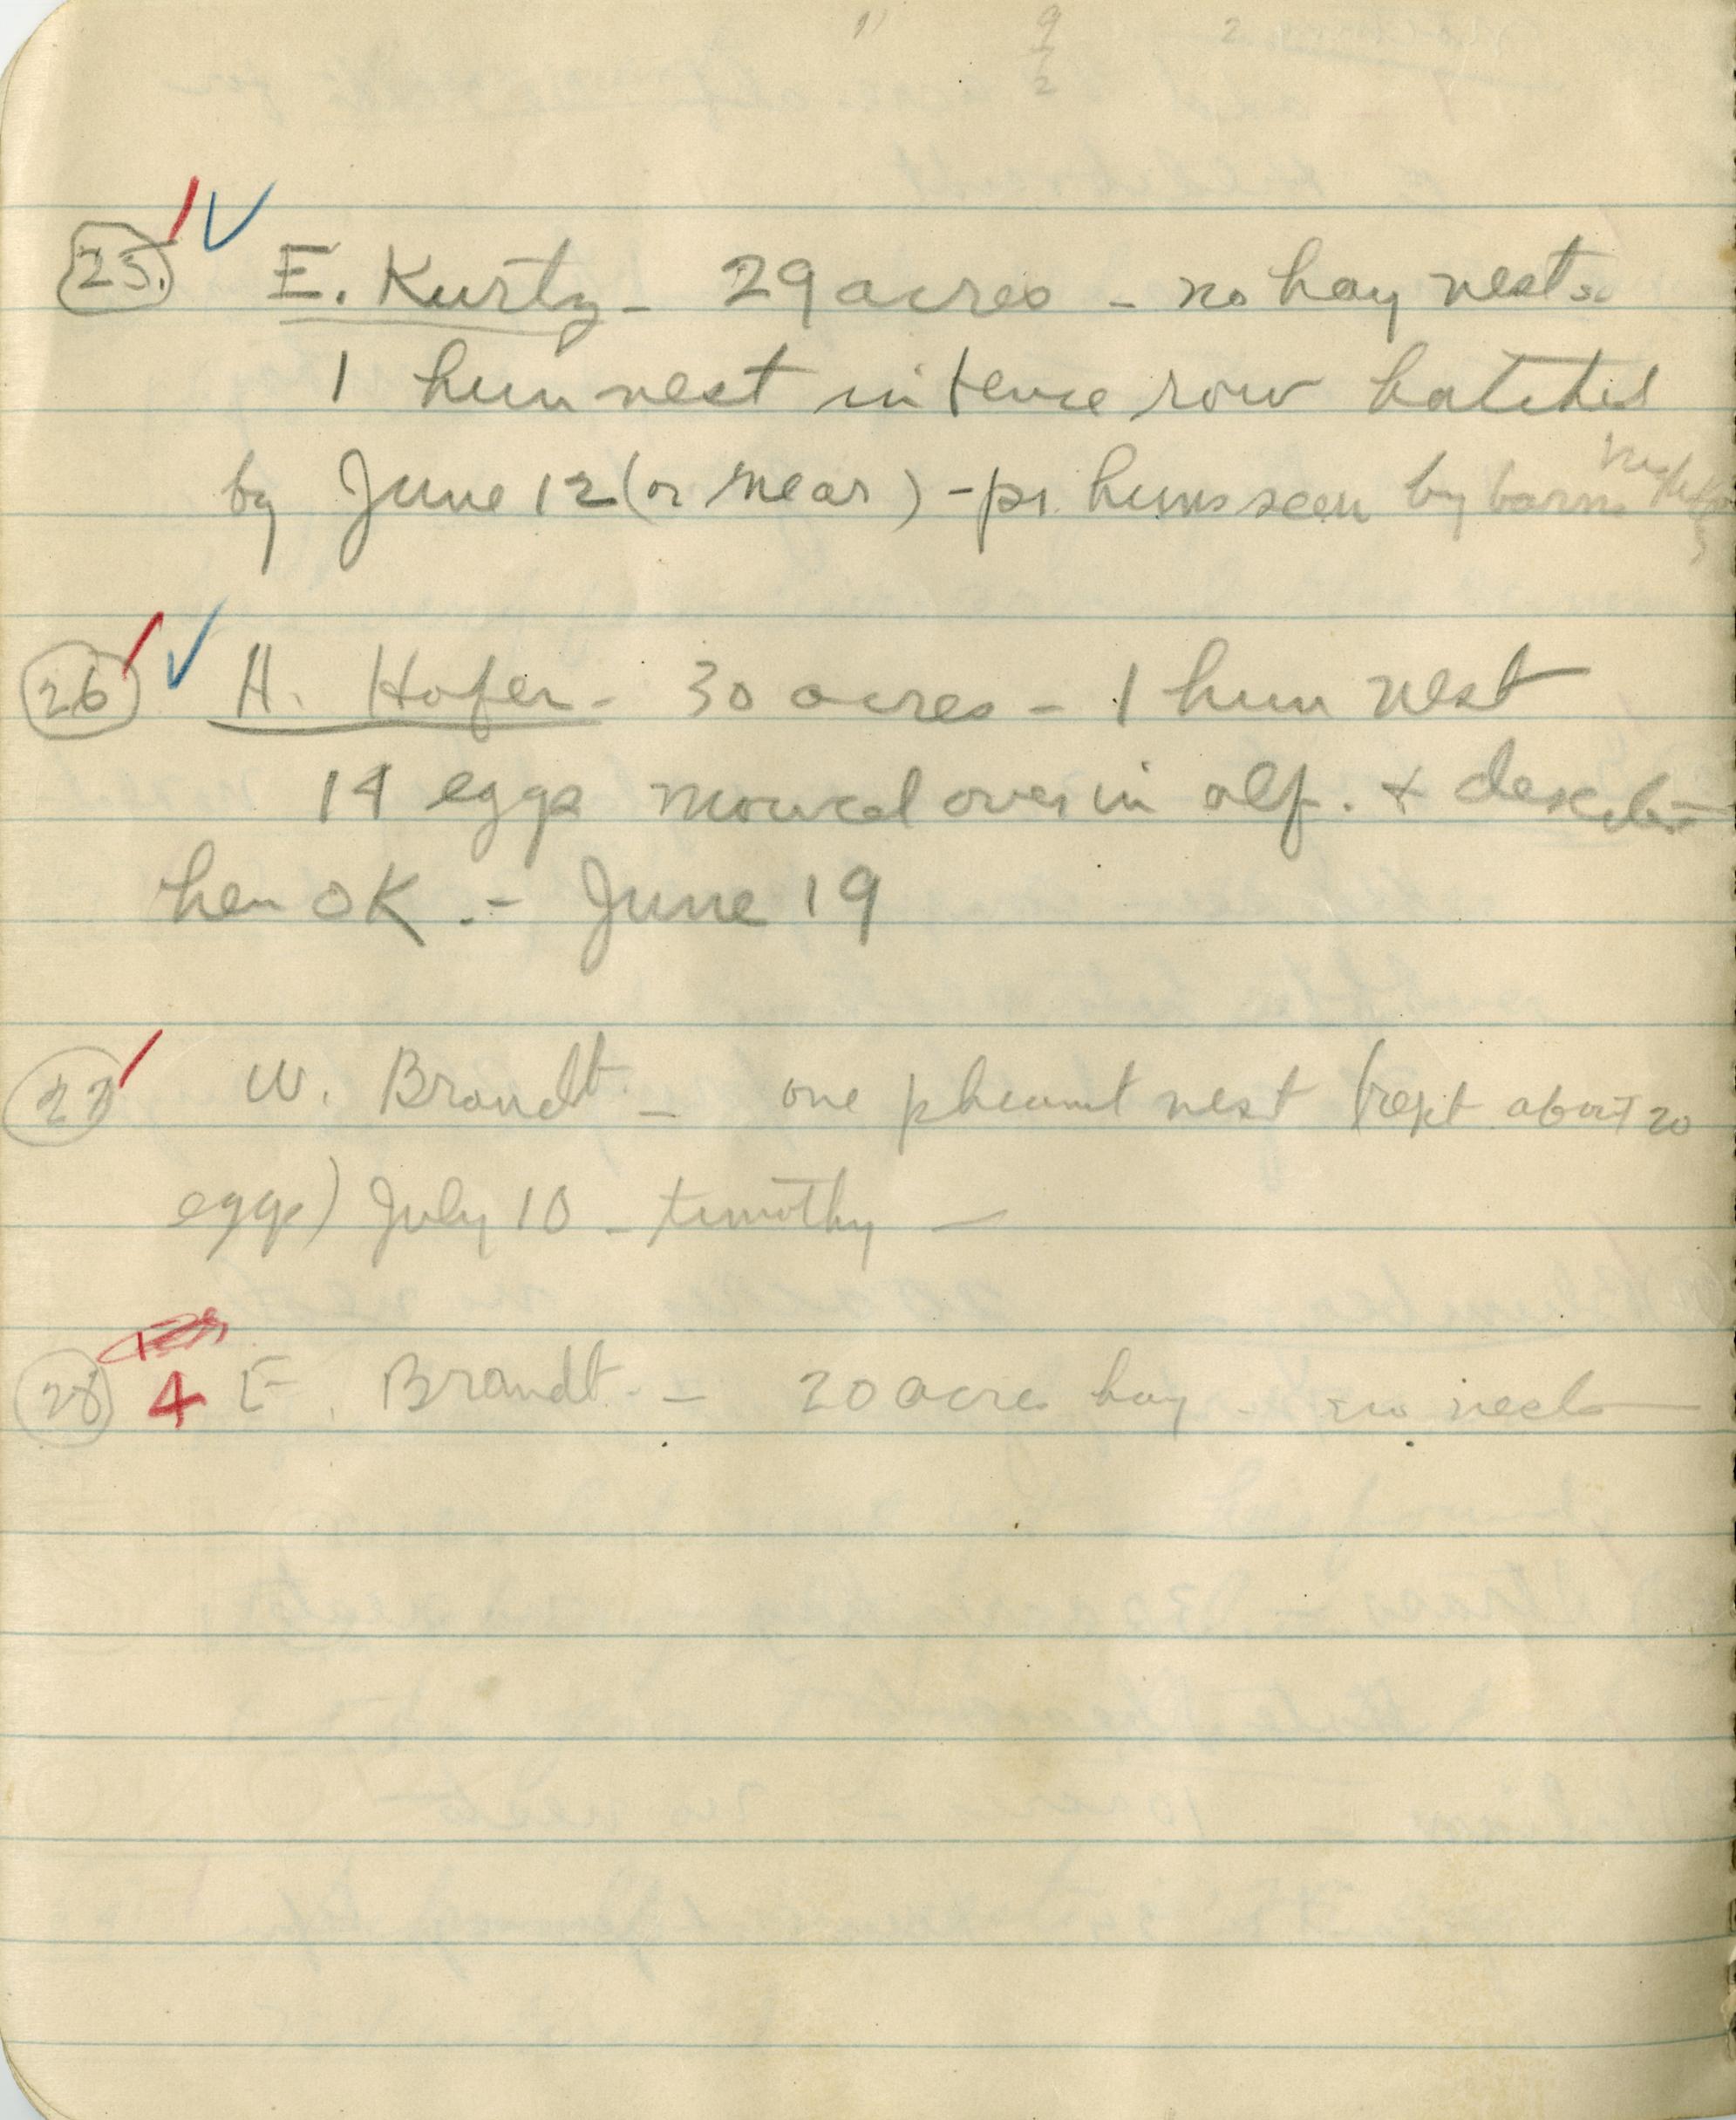 9
2
25. E. Kurtz - 29 acres - no hay nests.
1 hun nest in fence row hatched
by June 12 (or near) - pr. huns seen by barn
26 A. Hofer - 30 acres - 1 hun nest
14 eggs mowed over in alf. &
hen OK. - June 19
27 W. Brandt - one nest (rept about 20
eggs) July 10 - timothy -
28 4 E. Brandt. - 20 acre hay - no nest